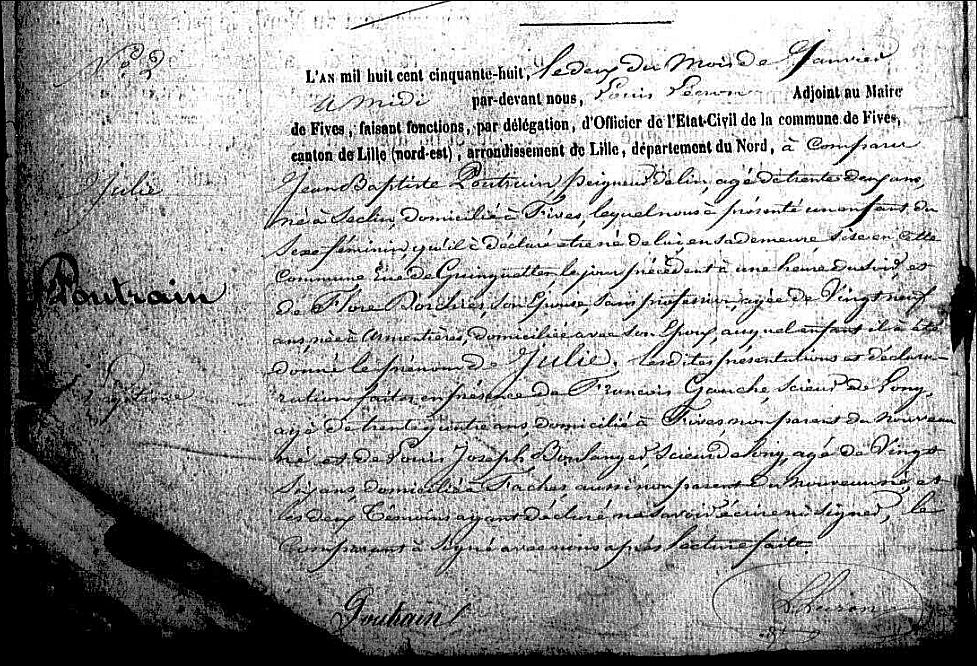 N° 2
L'AN mil huit cent cinquante-huit, le deux du mois de Janvier
à midi par-devant nous, Louis Adjoint au Maire
de Fives, faisant fonctions, par délégation, d'Officier de l'Etat-Civil de la commune de Fives,
canton de Lille (nord-est), arrondissement de Lille, département du Nord, à comparu
Julie
Jean Baptiste Poutrain, peigneur de lin, agé de trente deux ans,
né à Seclin, domicilié à Fives, lequel nous à présenté un enfant du
Sexe féminin, qu'il à déclaré être né de lui, en sa demeure sise en cette
Commune Rue de Guinguettes le jour précédent à une heure du soir, et
Poutrain
de Flore son Epouse, sans profession, agée de Vingt neuf
ans, née à Armentières, domiciliée avec son Epoux, auquel enfant il à été
donné le prénom de Julie. Lesdites présentations et déclara-
ration faites en présence de François Gauche, scieur de Long,
agé de trente quatre ans domicilié à Fives non parent du nouveau
né et de Louis Joseph Boulanger, scieur de long, agé de Vingt
Six ans, domicilié à Faches, aussi non parent du nouveau né, et
les deux témoins ayant déclaré ne savoir écrire ni signer, le
Comparant à signé avec nous après lecture faite.
Poutrain